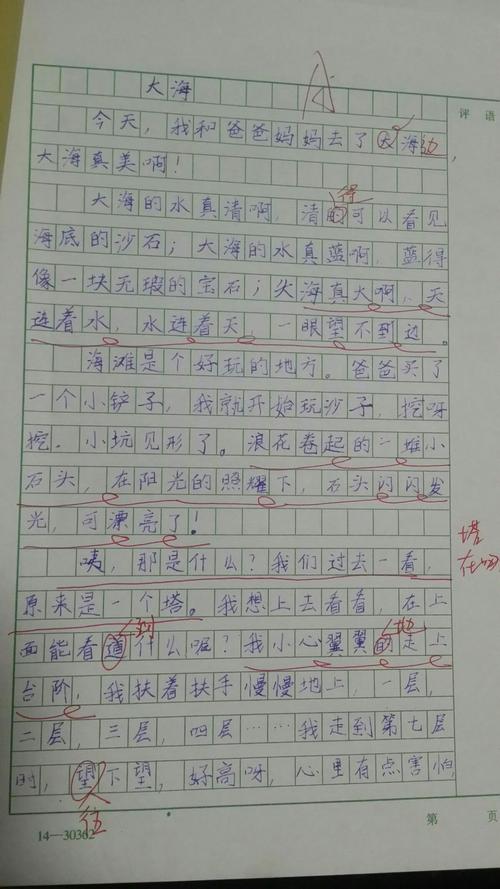 大海
A
评 语
今天，我和爸爸妈妈去了大海边，
大海真美啊！
得
大海的水真清啊，清的可以看见
海底的沙石；大海的水真蓝啊，蓝得
像一块无瑕的宝石；大海真大啊，天
连着水，水连着天，一眼望不到边。
海滩是个好玩的地方。爸爸买了
一个小铲子，我就开始玩沙子，挖呀
挖。小坑见形了。浪花卷起的一堆小
石头，在阳光的照耀下，石头闪闪发
光，可漂亮了！
塔
咦，那是什么？我们过去一看，
原来是一个塔。我想上去看看，在上
到 地
面能看道什么呢？我小心翼翼的走上
台阶，我扶着扶手慢慢地上，一层，
二层，三层，四层……我走到第七层
时，望下望，好高呀，心里有点害怕，
往
14—30362
第 页